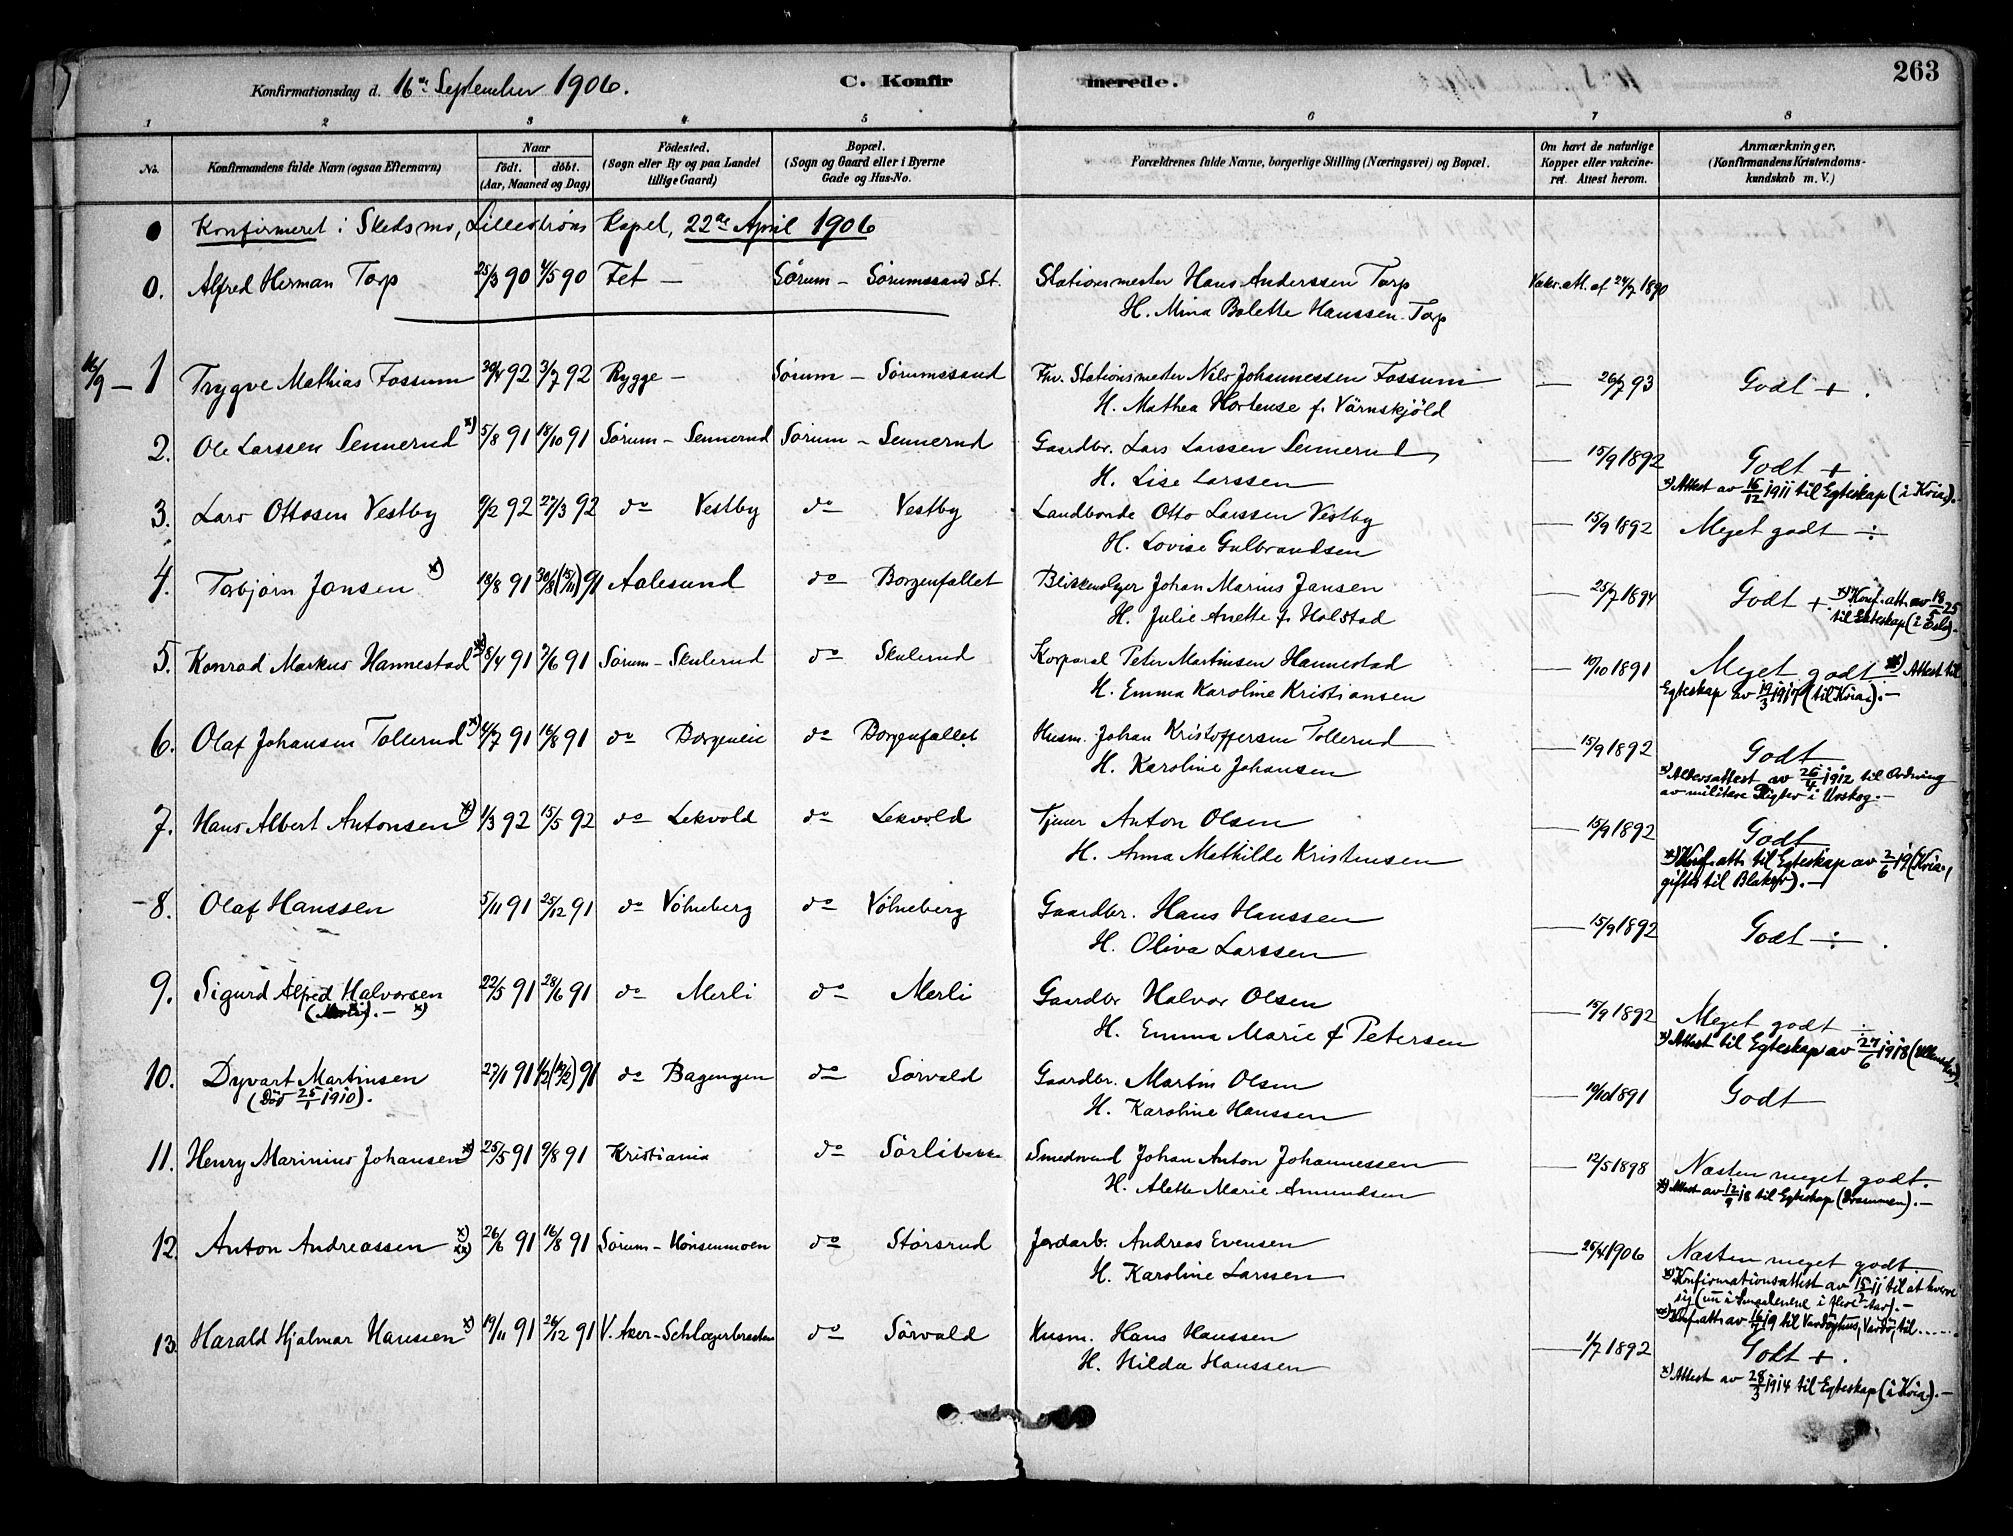 263
Konfirmationsdag d. 16de September 1906. C. Konfirmerede.
1 2 3 4 5 6 7 8
No. Konfirmandens fulde Navn (ogsaa Efternavn) Naar født. døbt. (Aar, Maaned og Dag) Fødested. (Sogn eller By og paa Landet tillige Gaard) Bopæl. (Sogn og Gaard eller i Byerne Gade og Hus-No. Forældrenes fulde Navne, borgerlige Stilling (Næringsvei) og Bopæl. Om havt de naturlige Kopper eller vakcineret. Attest herom. Anmærkninger. (Konfirmandens Kristendomskundskab m. V.)
Konfirmeret i Skedsmo, Lillestrøms Kapel, 22de April 1906
0. Alfred Herman Torp 25/3 90 4/5 90 Fet — Sørum – Sørumssand St. Stationsmester Hans Anderssen Torp Vakc. att. af 24/7 1890
H. Mina Bolette Hanssen Torp
16/9 — 1 Trygve Mathias Fossum 30/4 92 3/7 92 Rygge – Sørum – Sørumssand Fhv. Stationsmester Nils Johannessen Fossum — 26/7 93 Godt +.
H. Mathea Hortense f. Värnskjöld
2. Ole Larssen Sennerud x) 5/8 91 18/10 91 Sørum – Sennerud Sørum – Sennerud Gaardbr. Lars Larssen Sennerud — 15/9 1892 Godt +
H. Lise Larssen x) Attest av 16/12 1911 til Egteskap (i Kria).-
3. Lars Ottosen Vestby 9/2 92 27/3 92 do Vestby do Vestby Landhonde Otto Larssen Vestby — 15/9 1892 Meget godt ÷
H. Lovise Gulbrandsen
4. Torbjørn Jansen x) 18/8 91 30/8 (15/11) 91 Aalesund do Borgenfallet Blikkenslager Johan Marius Jansen — 25/7 1894 Godt + x) Konf. att. av 18/5 25
H. Julie Anette f. Holstad til Ekteskap (i Oslo).-
5. Konrad Markus Hannestad x) 8/4 91 7/6 91 Sørum – Skulerud do Skulerud Korporal Peter Martinsen Hannestad — 10/10 1891 Meget godt x) Attest til
H. Emma Karoline Kristiansen Egteskap av 19/3 1917 (til Kria).-
6. Olaf Johansen Tollerud x) 4/7 91 16/8 91 do Borgeneie do Borgenfallet Husm. Johan Kristoffersen Tollerud — 15/9 1892 Godt
H. Karoline Johansen x) Aldersattest av 26/4 1912 til Ordning
av militære Pligter i Urskog.-
7. Hans Albert Antonsen x) 1/3 92 15/5 92 do Lekvold do Lekvold Tjener Anton Olsen — 15/9 1892 Godt
H. Anna Mathilde Kristensen x) Konf. att. til Egteskap av 2/6 19 (Kria,
giftes til Blaker).-
8. Olaf Hanssen 5/11 91 25/12 91 do Vølneberg do Vølneberg Gaardbr. Hans Hanssen — 15/9 1892 Godt ÷.
H. Oliva Larssen
9. Sigurd Alfred Halvorsen 22/5 91 28/6 91 do Merli do Merli Gaardbr Halvor Olsen — 15/9 1892 Meget godt ÷
(Merli).- x) H. Emma Marie f Petersen x) Attest til Egteskap av 27/6 1918 (Ullensaker).
10. Dyvart Martinsen 27/1 91 1/2 (19/2) 91 do Bagengen do Sørvald Gaardbr. Martin Olsen — 10/10 1891 Godt
(Død 25/1 1910). H. Karoline Hanssen
11. Henry Marinius Johansen x) 25/5 91 9/8 91 Kristiania do Sørlibakke Smedsvend Johan Anton Johannessen — 12/5 1898 Næsten meget godt.
H. Alette Marie Amundsen x) Attest av 12/9 18 til Egteskap (Drammen).-
12. Anton Andreassen x) xx) 26/6 91 16/8 91 Sørum – Hönsenmoen do Störsrud Jordarb. Andreas Evensen — 25/4 1906 Næsten meget godt
H. Karoline Larssen x) Konfirmationsattest av 15/2 11 til at hverve
sig
xx) Konf. att. av 16/7 19 til Vardøyhus, Vardø, til ......
13. Harald Hjalmar Hanssen x) 19/11 91 26/12 91 V. Aker – do Sørvald Husm. Hans Hanssen — 1/7 1892 Godt +.
H. Hilda Hanssen x) Attest av 28/3 1914 til Egteskap (i Kria).-